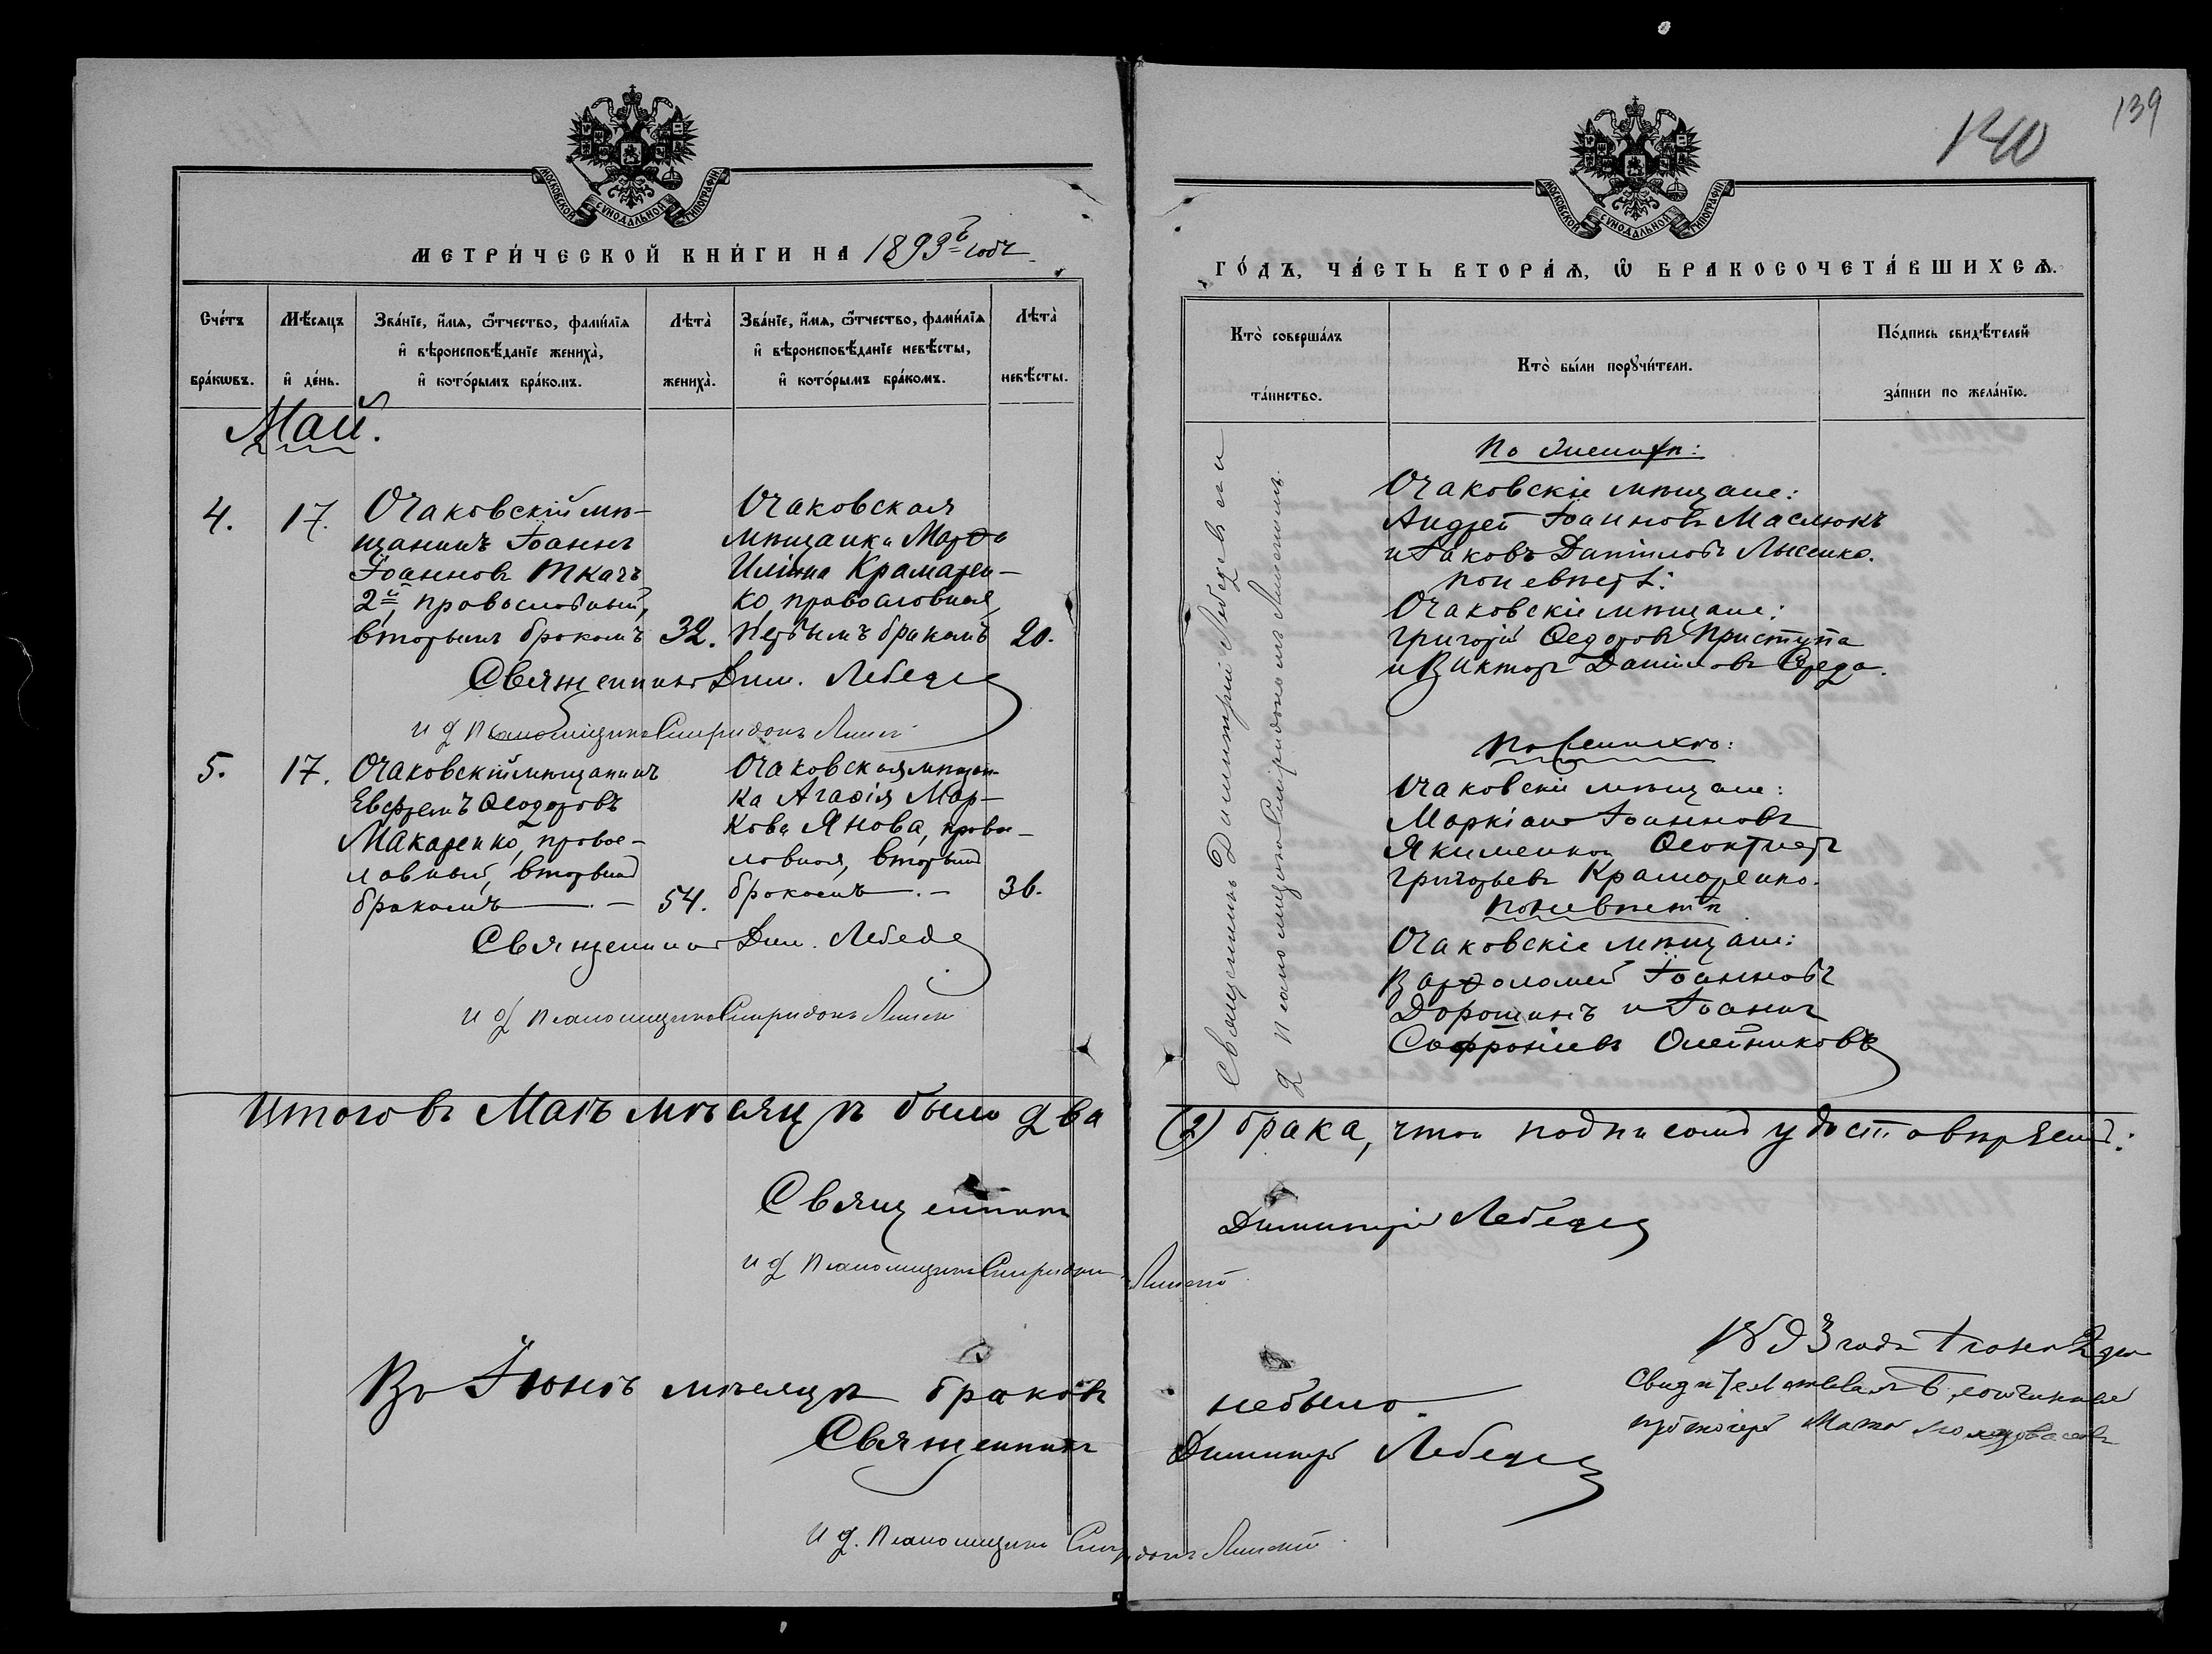 139
140
МОСКОВСКОЙ СѴНОДАЛЬНОЙ ТИПОГРАФІИ
МЕТРИ́ЧЕСКОЙ КНИ́ГИ НА 1893й годъ
Сче́тъ бра́кѡвъ.
Мѣ́сяцъ и҆ де́нь.
Зва́нїе, и҆́мѧ, ѻ҆́тчество, фами́лїѧ
и҆ вѣроисповѣ́данїе жениха̀,
и҆ кото́рымъ бра́комъ.
Лѣта̀ жениха̀.
Зва́нїе, и҆́мѧ, ѻ҆́тчество, фами́лїѧ
и҆ вѣроисповѣ́данїе невѣ́сты,
и҆ кото́рымъ бра́комъ.
Лѣта̀ невѣ́сты.
Май.
4.
17.
Очаковскій мѣ-
щанинъ Іоаннъ
Іоанновъ Ткачъ
2й, православный,
вторымъ бракомъ
32.
Очаковская
мѣщанка Марѳа
Иліина Крамарен-
ко, православная,
первымъ бракомъ
20.
Священникъ Дим. Лебедев
и д псаломщика Спиридонъ
5.
17.
Очаковскій мѣщанинъ
Евфремъ Ѳеодоровъ
Макаренко, правос-
лавный, вторымъ
бракомъ —
54.
Очаковская мѣщан-
ка Агаѳія Мар-
кова Янова, правос-
лавная, вторымъ
бракомъ —
36.
Священникъ Дим. Лебедев
и д псаломщика Спиридонъ
Итого въ Маѣ мѣсяцѣ было два
Священникъ
и д псаломщика Спиридонъ
Въ Іюнѣ мѣсяцѣ браковъ
Священникъ
и д. псаломщика Спиридонъ
МОСКОВСКОЙ СѴНОДАЛЬНОЙ ТИПОГРАФІИ
ГО́ДЪ, ЧА́СТЬ ВТОРА́Ѧ, Ѡ҆ БРАКОСОЧЕТА́ВШИХСѦ.
Кто̀ соверша́лъ та́инство.
Кто̀ бы́ли порꙋчи́тели.
По́дпись свидѣ́телей за́писи по жела́нїю.
Священникъ Димитрій Лебедевъ и
д псаломщика Спиридонъ
По женихѣ:
Очаковскіе мѣщане:
Андрей Іоанновъ Маслюкъ
и Іаковъ Даніиловъ Лысенко.
По невѣстѣ:
Очаковскіе мѣщане:
Григорій Ѳеодоровъ Приступа
и Викторъ Даніиловъ Середа.
По женихѣ:
Очаковскіе мѣщане:
Маркіанъ Іоанновъ
Якименко и Ѳеоктистъ
Григорьевъ Крамаренко.
По невѣстѣ
Очаковскіе мѣщане:
Варѳоломей Іоанновъ
Дорошинъ и Іоаннъ
Софроніевъ Олейниковъ
(2) брака, что и подписомъ удостовѣряемъ:
Димитрій Лебедев
не было.
Димитрій Лебедев
1893 года Іюня 2 дня
Свидѣтельствовалъ Благочинный
протоіерей